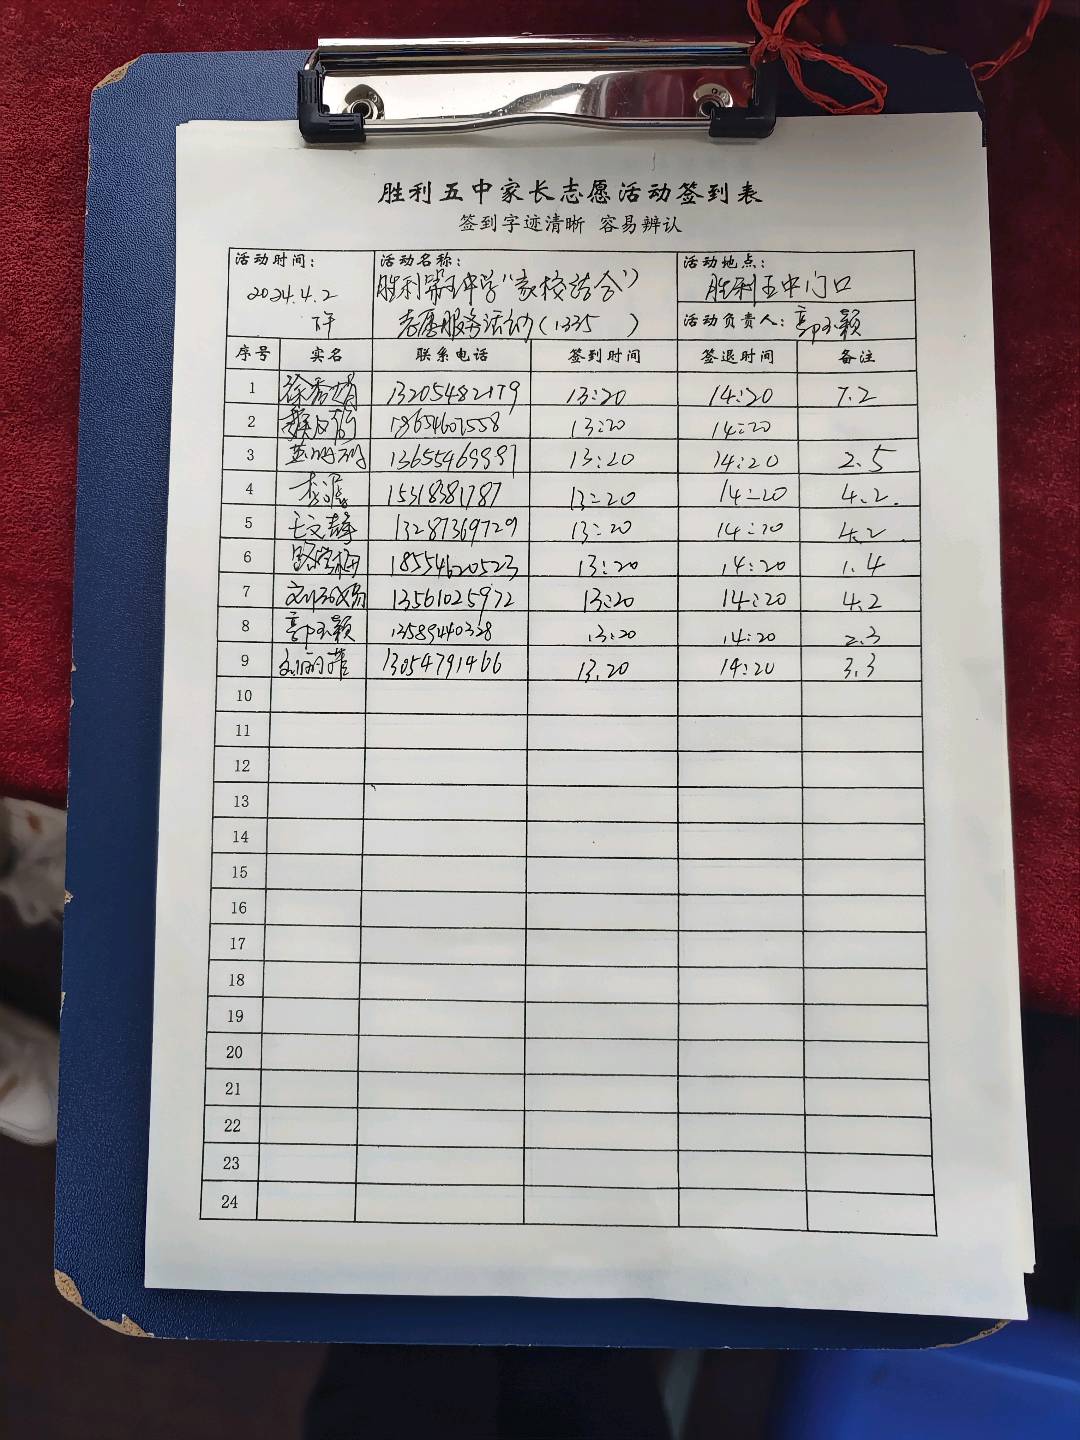 胜利五中家长志愿活动签到表
签到字迹清晰 容易辨认
活动时间: 2024.4.2 下午
活动名称: 胜利第五中学“家校结合”
志愿服务活动(1335 )
活动地点: 胜利五中门口
活动负责人: 郭玉颖
序号 实名 联系电话 签到时间 签退时间 备注
1 13205482179 13:20 14:20 7.2
2 18654607558 13:20 14:20
3 13:20 14:20 2.5
4 15318381787 13:20 14:20 4.2.
5 王文静 13287369729 13:20 14:20 4.2
6 18554620523 13:20 14:20 1.4
7 13561025972 13:20 14:20 4.2
8 郭玉颖 13589440328 13:20 14:20 2.3
9 13054791466 13.20 14:20 3.3
10
11
12
13
14
15
16
17
18
19
20
21
22
23
24